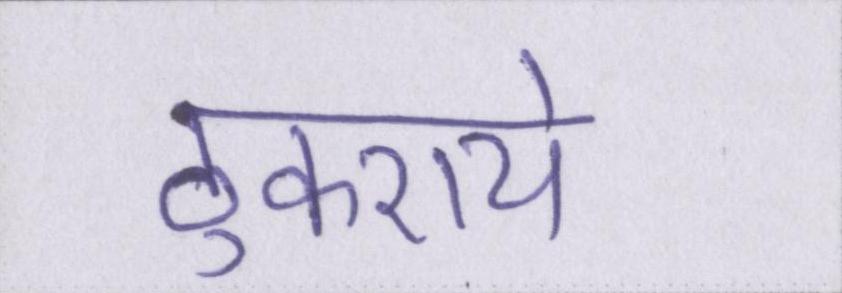 ठुकराये